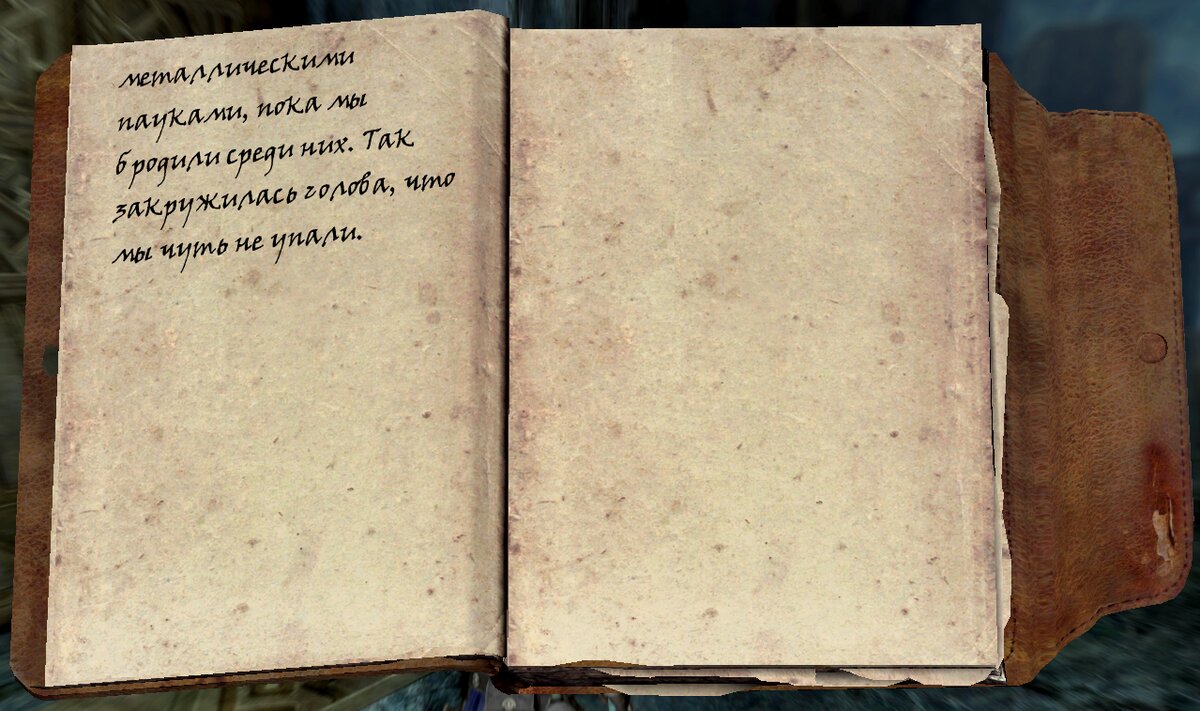 металлическими
пауками, пока мы
бродили среди них. Так
закружилась голова, что
мы чуть не упали.